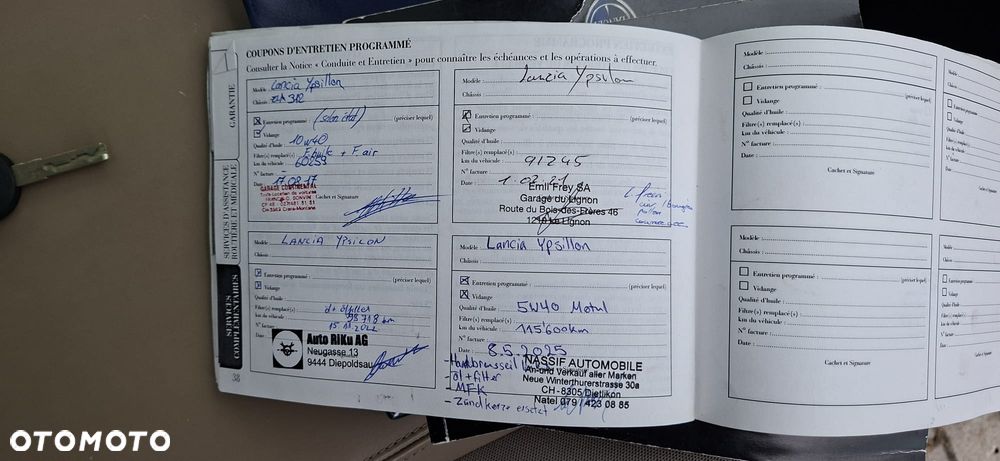 COUPONS D'ENTRETIEN PROGRAMMÉ
Consulter la Notice « Conduite et Entretien » pour connaître les échéances et les opérations à effectuer.
GARANTIE
SERVICES D'ASSISTANCE
ROUTIÈRE ET MÉDICALE
SERVICES
COMPLÉMENTAIRES
38
Modèle : Lancia Ypsillon
Châssis : 312
Entretien programmé : (selon état) (préciser lequel)
Vidange
Qualité d'huile : 10w40
Filtre(s) remplacé(s) : F.huile + F.air
km du véhicule : 60253
N° facture : -
Date : 17.08.17
Cachet et Signature
GARAGE CONTINENTAL
Modèle : Lancia Ypsilon
Châssis :
Entretien programmé : (préciser lequel)
Vidange
Qualité d'huile :
Filtre(s) remplacé(s) :
km du véhicule : 91245
N° facture :
Date : 1.02.21
Emil Frey SA
Garage du Lignon
Route du Bois-des-Frères 46
1219 Le Lignon
Modèle : LANCIA YPSILON
Châssis :
Entretien programmé : (préciser lequel)
Vidange
Qualité d'huile :
Filtre(s) remplacé(s) : öl + ölfilter
km du véhicule : 98718 km
N° facture : 15.11.2022
Date :
Auto RiKu AG
Neugasse 13
9444 Diepoldsau
Lancia Ypsillon
Châssis :
Entretien programmé : (préciser lequel)
Vidange
Qualité d'huile : 5W40 Motul
Filtre(s) remplacé(s) :
km du véhicule : 115'600km
N° facture :
Date : 8.5.2025
- Handbremsseil
- öl + Filter
- MFK
- Zündkerze ersetzt
NASSIF AUTOMOBILE
An-und Verkauf aller Marken
Neue Winterthurerstrasse 30a
CH - 8305 Dietlikon
Natel 079 / 423 08 85
Modèle :
Châssis :
Entretien programmé : (préciser lequel)
Vidange
Qualité d'huile :
Filtre(s) remplacé(s) :
km du véhicule :
N° facture :
Date :
Cachet et Signature
Modèle :
Châssis :
Entretien programmé : (préciser lequel)
Vidange
Qualité d'huile :
Filtre(s) remplacé(s) :
km du véhicule :
N° facture :
Date :
Cachet et Signature
Modèle :
Châssis :
Entretien
Vidange
Qualité d'huile
Filtre(s) rempl
km du véhicule
N° facture :
Date :
Modèle :
Châssis :
Entretien p
Vidange
Qualité d'huile :
Filtre(s) rempla
km du véhicule :
N° facture :
Date :
OTOMOTO